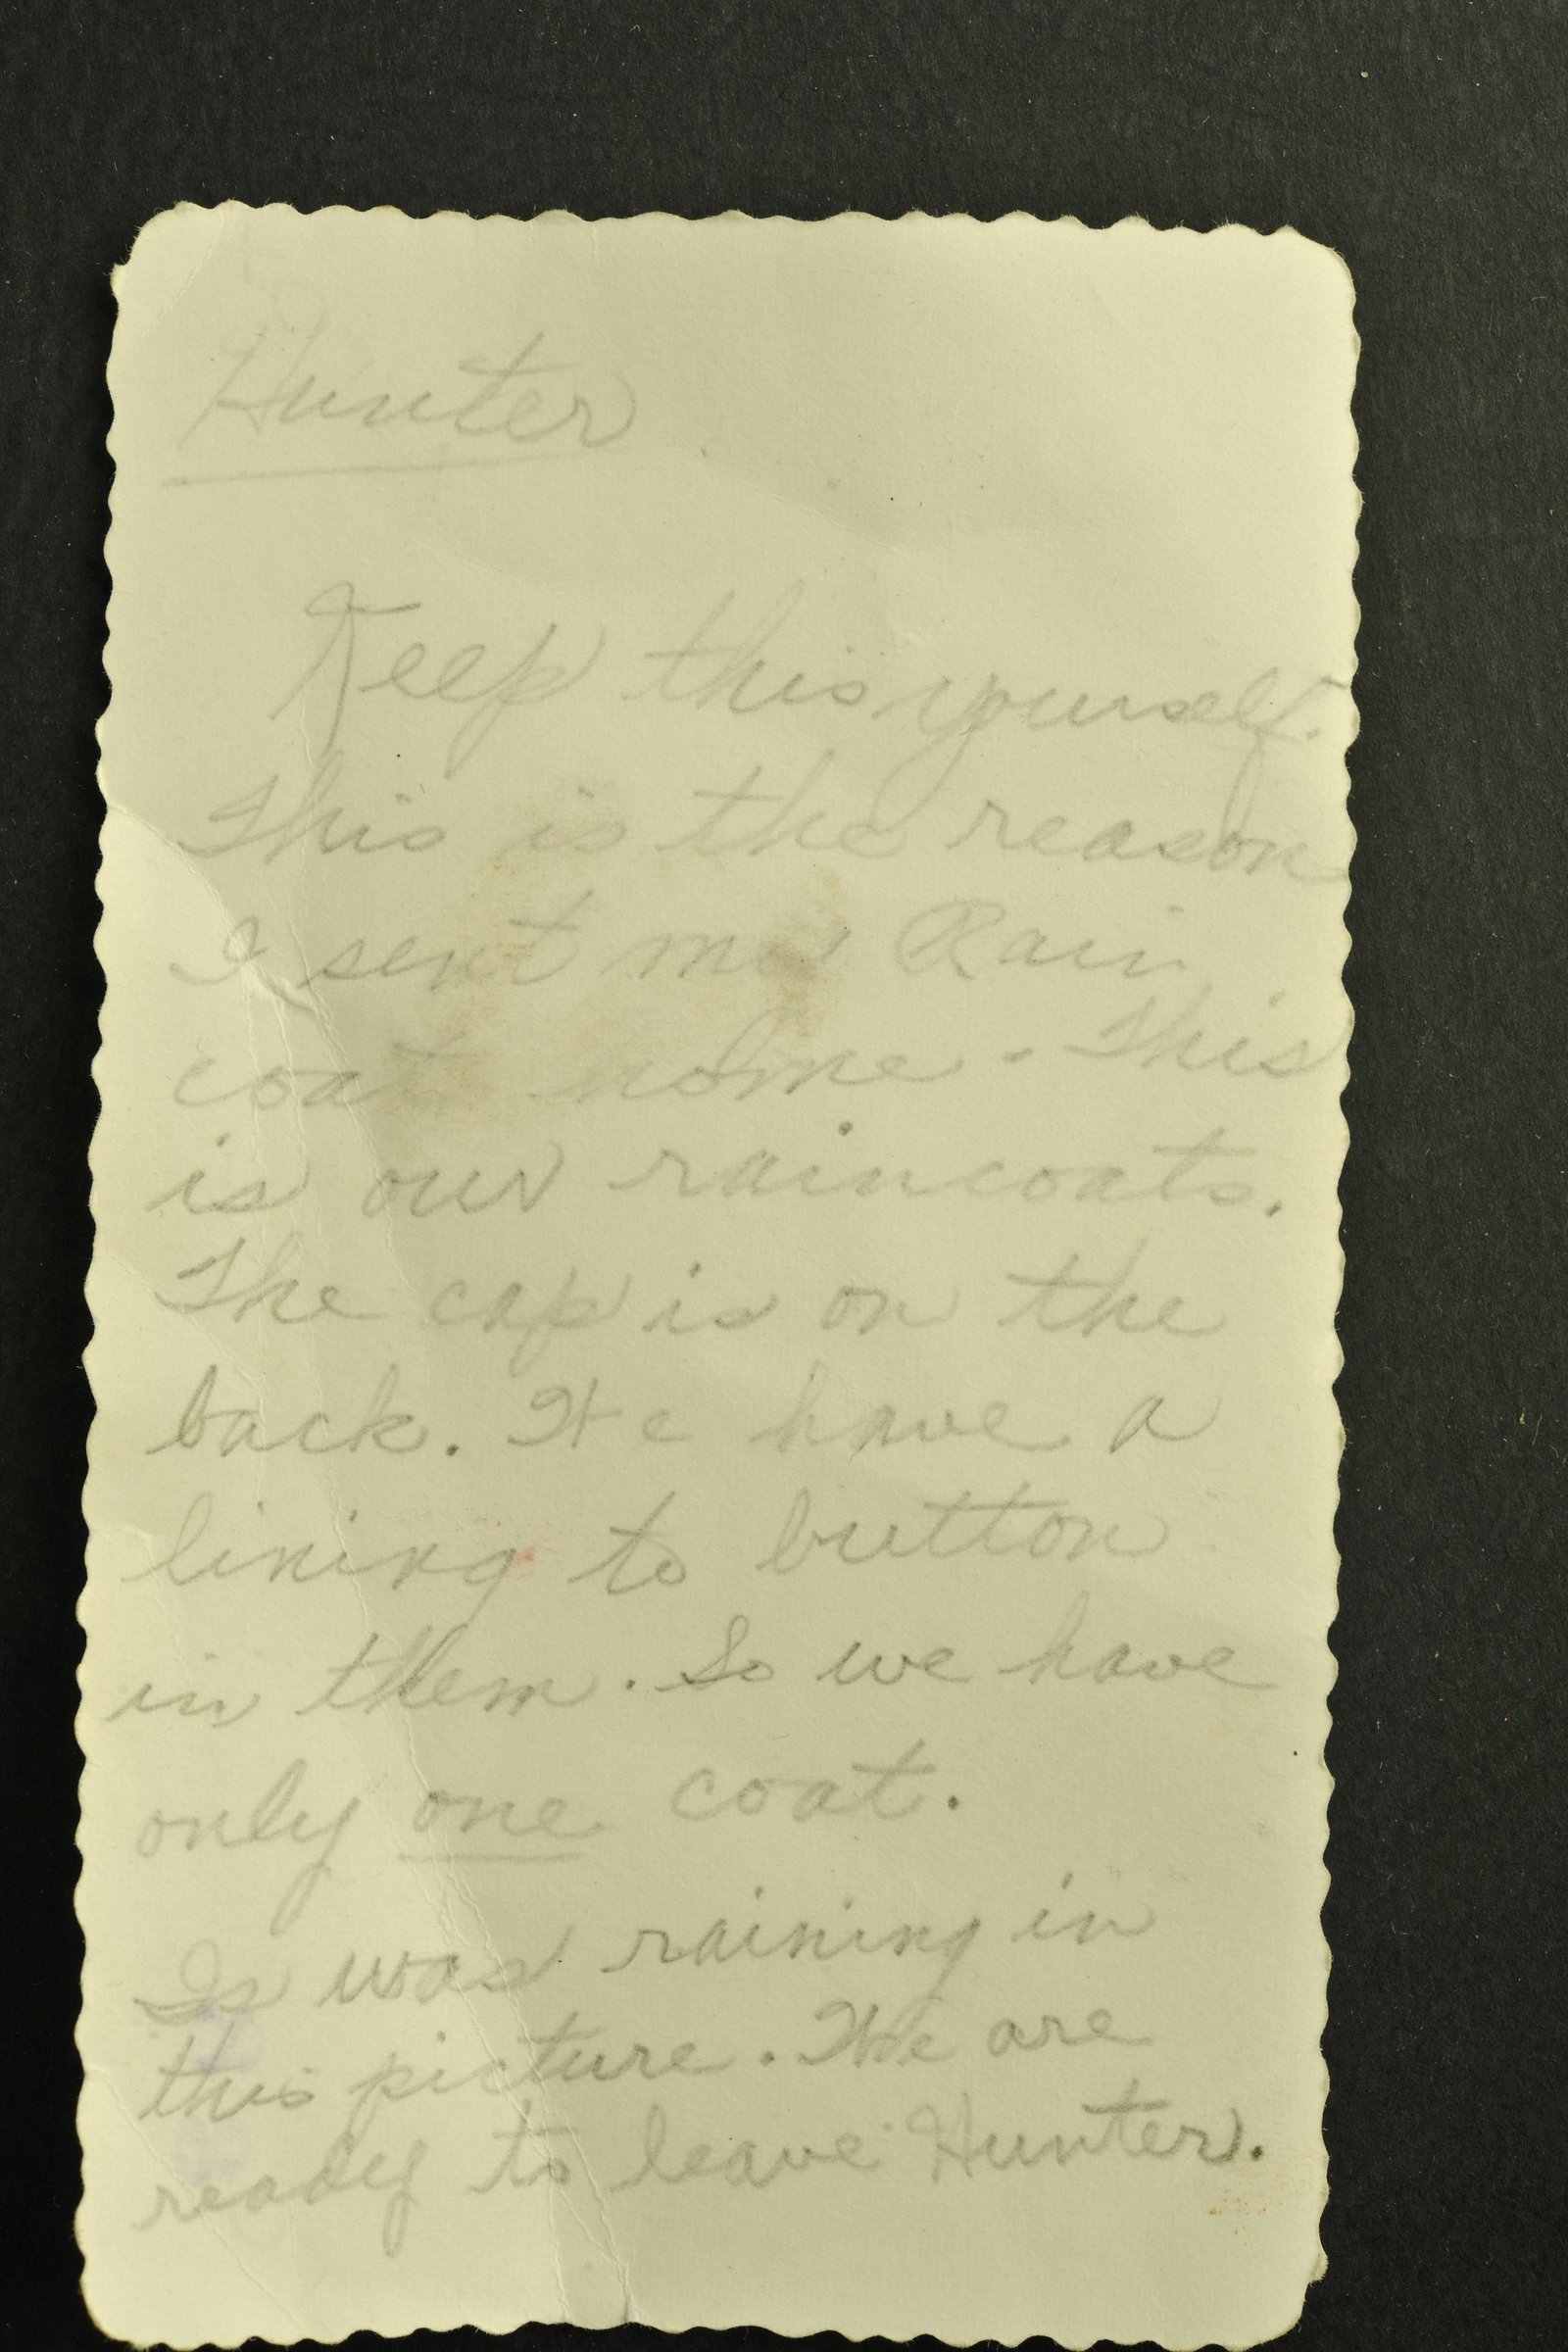 Hunter
Keep this yourself.
This is the reason
I sent my Rain
coat home. This
is our raincoats.
The cap is on the
back. We have a
lining to button
in them. So we have
only one coat.
Is was raining in
this picture. We are
ready to leave Hunter.